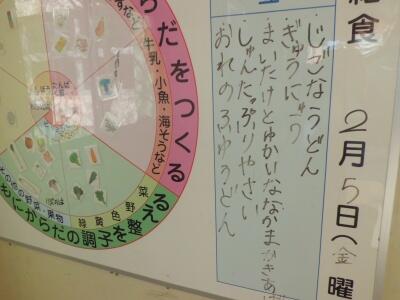 給食 2月5日(金)曜
じごなうどん
ぎゅうにゅう
まいたけとゆかいななかまかきあ
しゅんたっぷりやさい
おれのふゆうどん
らだをつくる
牛乳・小魚・海そうなど
もにからだの調子を整える
緑黄色野菜
その他の野菜・果物